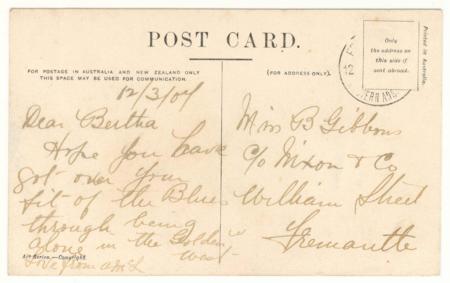 POST CARD.
FOR POSTAGE IN AUSTRALIA AND NEW ZEALAND ONLY
THIS SPACE MAY BE USED FOR COMMUNICATION.
(FOR ADDRESS ONLY).
Only
the address on
this side if
sent abroad.
Printed in Australia.
12/3/07
Dear Bertha
Hope you have
got over your
fit of the Blues
through being
alone in the Golden
West
Love from
Art Series.—Copyright.
Miss B Gibbons
C/o Nixon & Co
William Street
Fremantle